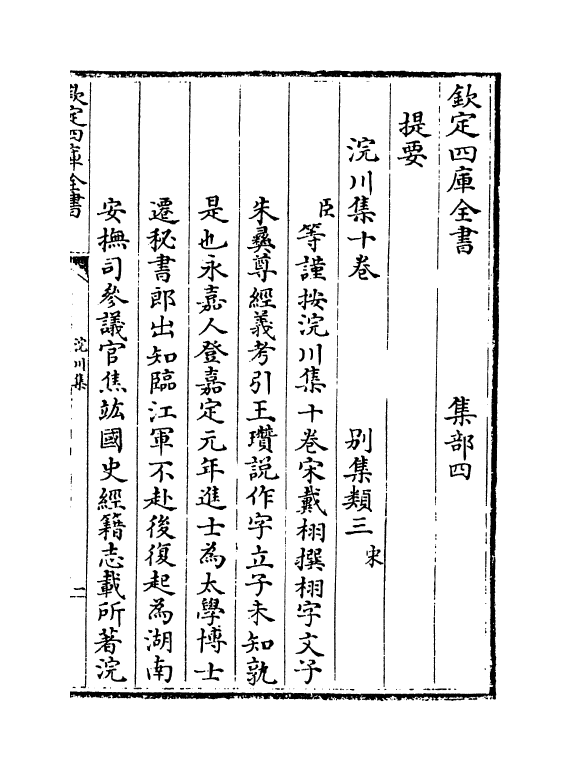 欽定四庫全書　集部四
提要
浣川集十卷　別集類三宋
臣等謹按浣川集十卷宋戴栩撰栩字文子
朱彝尊經義考引王瓚説作字立子未知孰
是也永嘉人登嘉定元年進士為太學博士
遷秘書郎出知臨江軍不赴後復起為湖南
安撫司參議官焦竑國史經籍志載所著浣
欽定四庫全書
浣川集